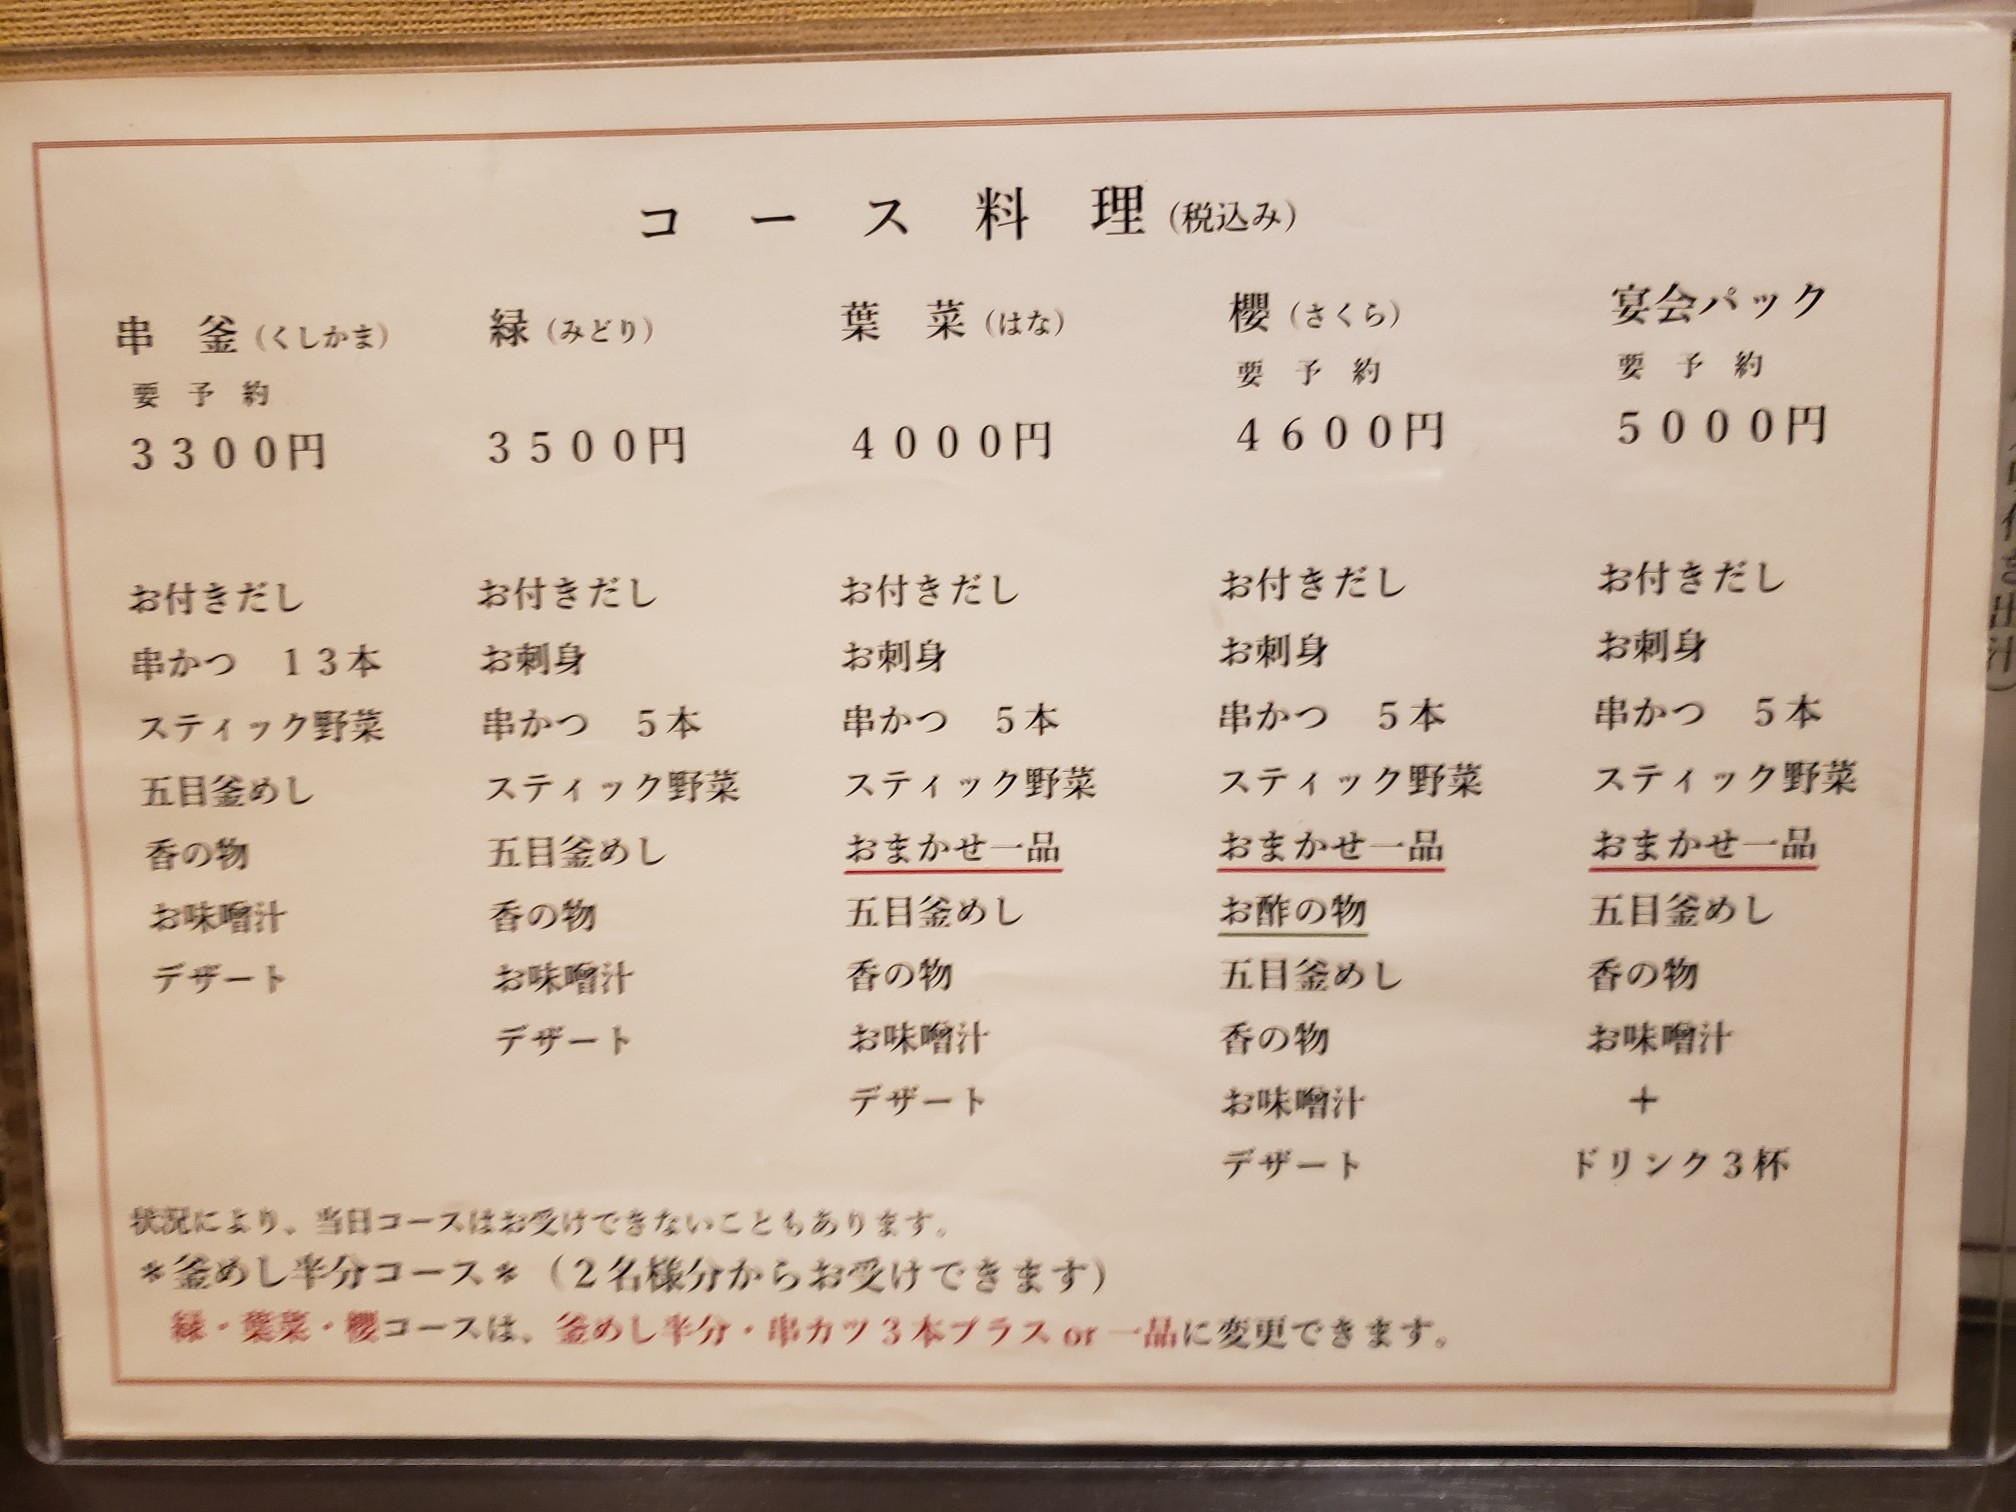 コース料理(税込み)
串 釜(くしかま)
要 予 約
3300円
お付きだし
串かつ 13本
スティック野菜
五目釜めし
香の物
お味噌汁
デザート
緑(みどり)
3500円
お付きだし
お刺身
串かつ 5本
スティック野菜
五目釜めし
香の物
お味噌汁
デザート
葉 菜(はな)
4000円
お付きだし
お刺身
串かつ 5本
スティック野菜
おまかせ一品
五目釜めし
香の物
お味噌汁
デザート
櫻(さくら)
要 予 約
4600円
お付きだし
お刺身
串かつ 5本
スティック野菜
おまかせ一品
お酢の物
五目釜めし
香の物
お味噌汁
デザート
宴会パック
要 予 約
5000円
お付きだし
お刺身
串かつ 5本
スティック野菜
おまかせ一品
五目釜めし
香の物
お味噌汁
+
ドリンク3杯
状況により、当日コースはお受けできないこともあります。
*釜めし半分コース*(2名様分からお受けできます)
緑・葉菜・櫻コースは、釜めし半分・串カツ3本プラス or 一品に変更できます。